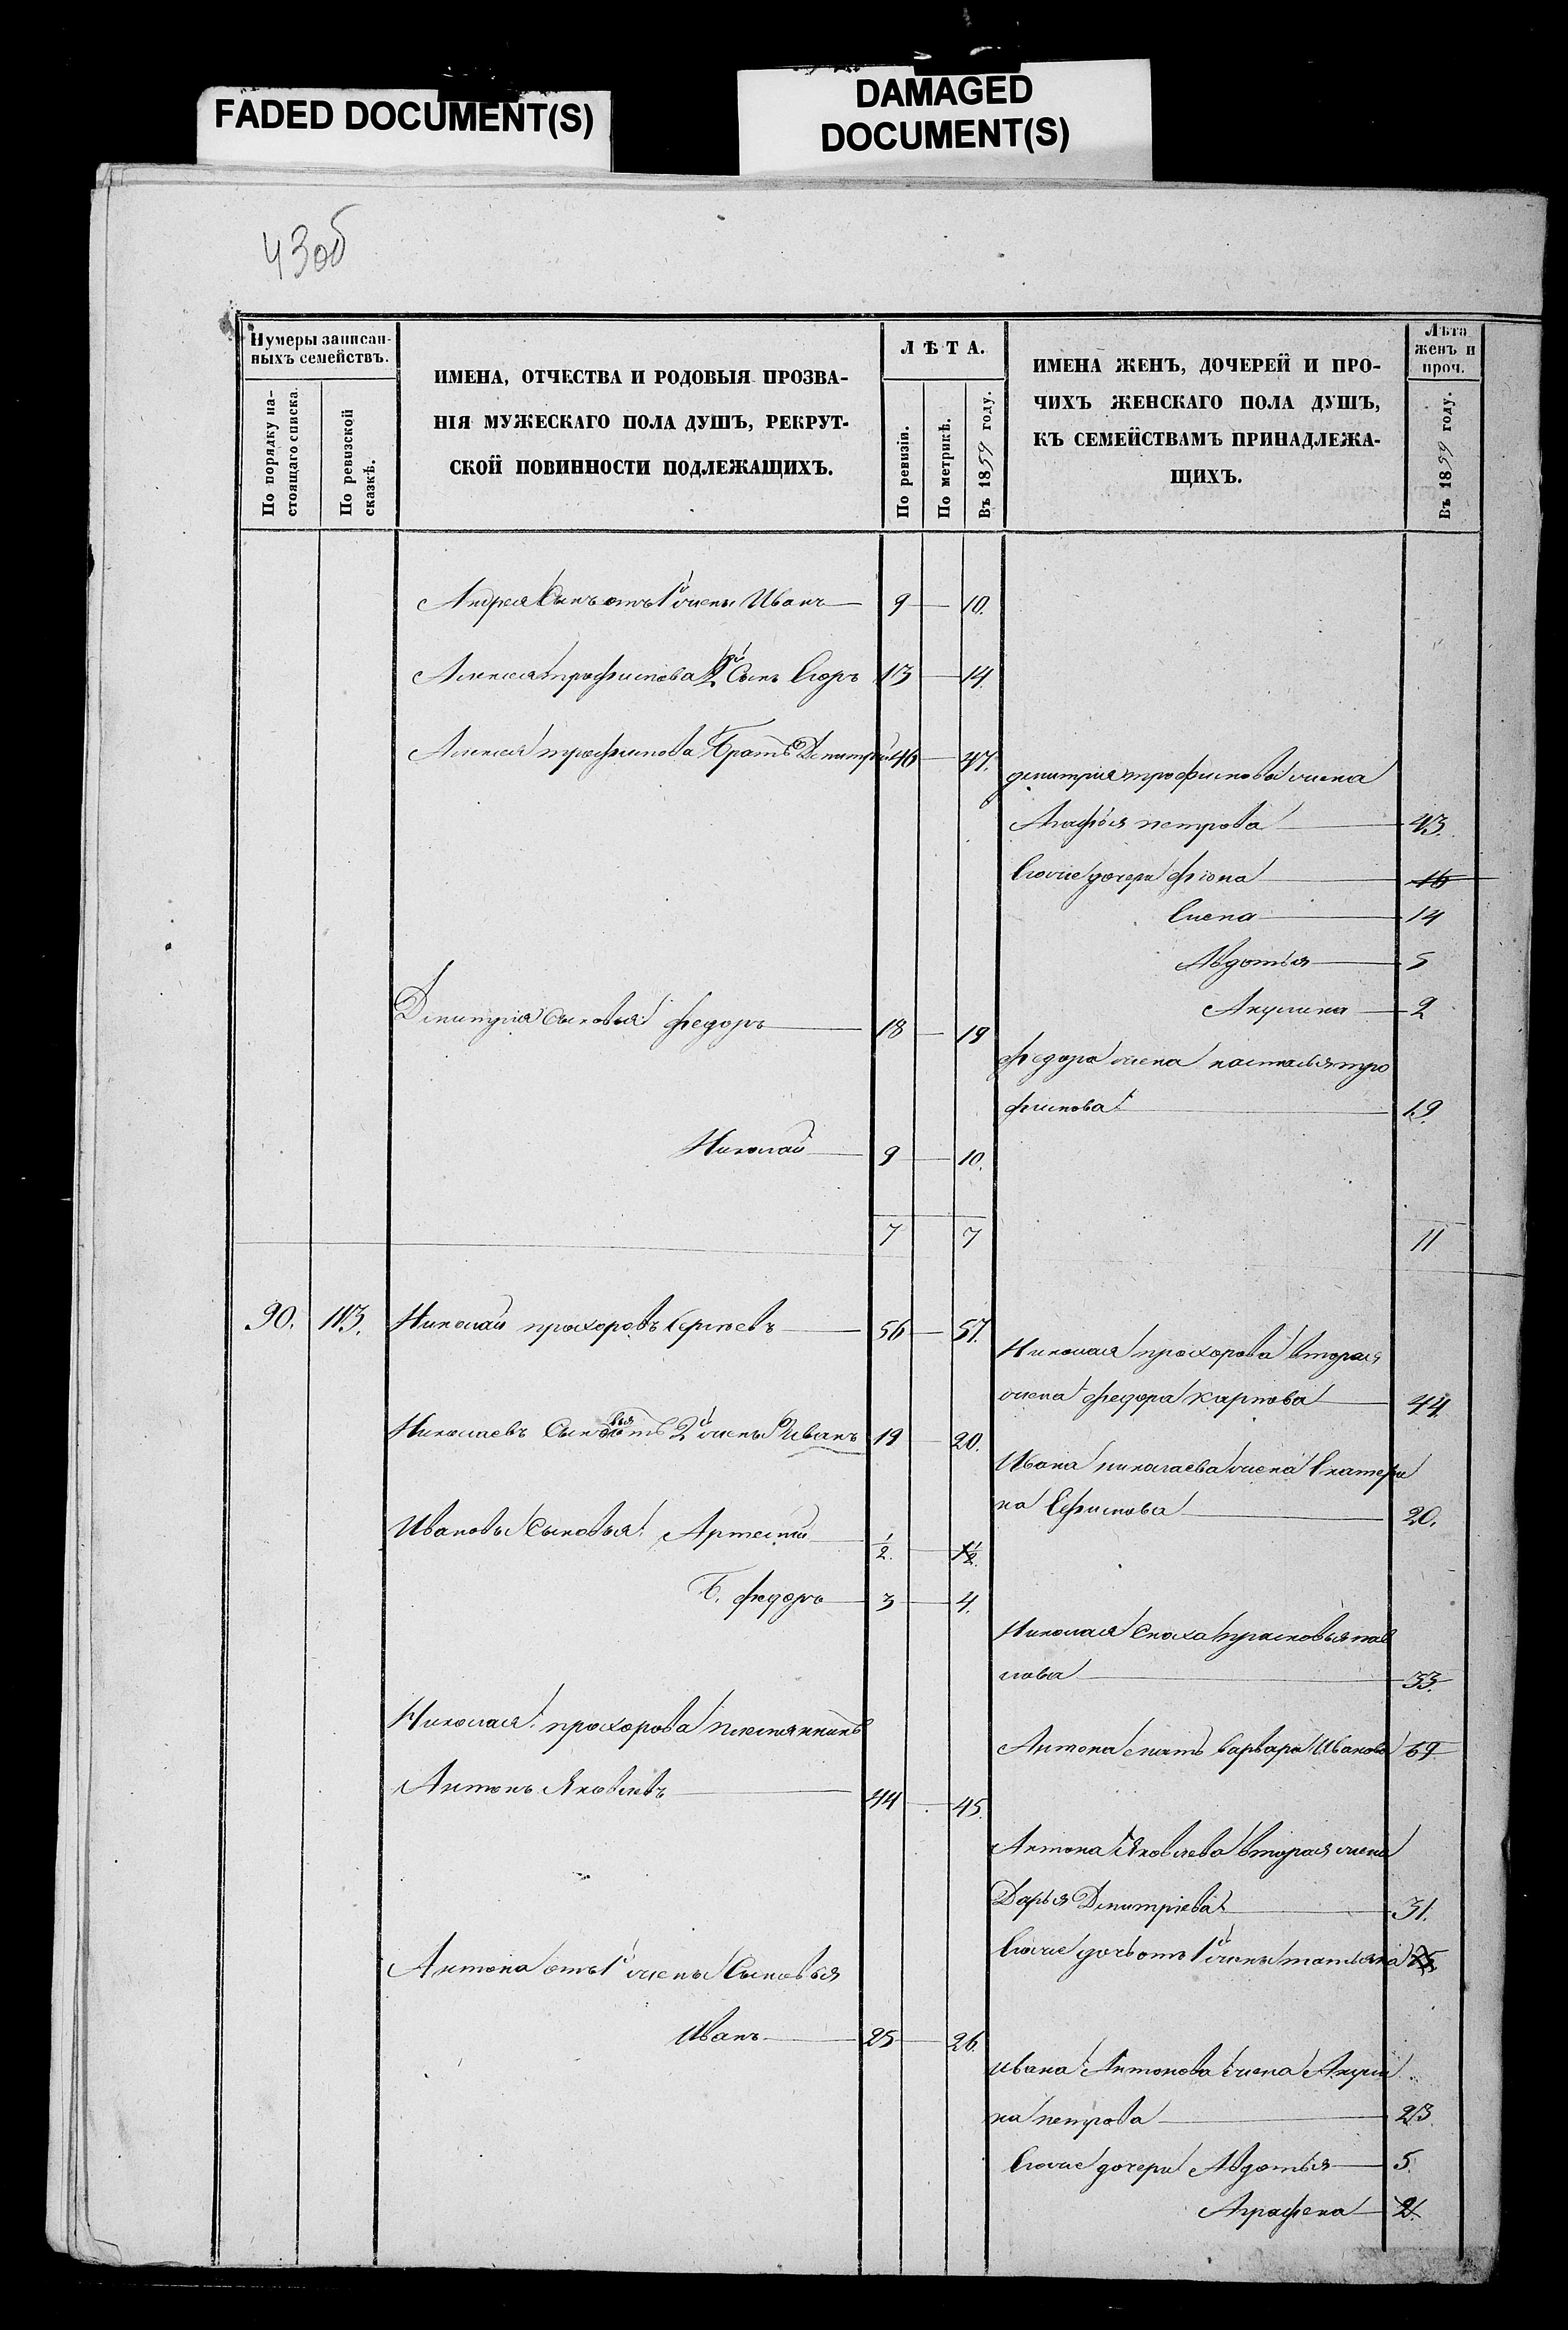 FADED DOCUMENT(S)
DAMAGED
DOCUMENT(S)
43об
Нумеры записан-
ныхъ семействъ.
По порядку на-
стоящаго списка.
По ревизской
сказкѣ.
ИМЕНА, ОТЧЕСТВА И РОДОВЫЯ ПРОЗВА-
НІЯ МУЖЕСКАГО ПОЛА ДУШЪ, РЕКРУТ-
СКОЙ ПОВИННОСТИ ПОДЛЕЖАЩИХЪ.
ЛѢТА.
По ревизіи.
По метрикѣ.
Въ 1859 году.
ИМЕНА ЖЕНЪ, ДОЧЕРЕЙ И ПРО-
ЧИХЪ ЖЕНСКАГО ПОЛА ДУШЪ,
КЪ СЕМЕЙСТВАМЪ ПРИНАДЛЕЖА-
ЩИХЪ.
Лѣта
женъ и
проч.
Въ 1859 году.
Андрея Сынъ отъ 1й жены Иванъ 9 10.
Алексея трофимова 2й Сынъ Егоръ 13 14.
Алексея трофимова Братъ Дмитрий 46 47.
дмитрия трофимова жена
Агафья петрова 43.
Ево же дочери фіона 16
Елена 14
Авдотья 5
Акулина 2
Дмитрия Сыновья федоръ 18 19
федора жена настасья тро
фимова 19.
Николай 9 10.
7 7 11
90. 113. Николай прохоровъ Сергѣевъ 56 57.
Николая прохорова вторая
жена федора карпова 44.
Николаевъ Сыновья отъ 2й жены Иванъ 19 20.
Ивана николаева жена Екатери
на Ефимова 20.
Ивановы Сыновья Артемий 1/2. 1 1/2.
Б. федоръ 3 4.
Николая Сноха прасковья пав
лова 53.
Николая прохорова племянникъ
Антона мать варвара Иванова 69.
Антонъ Яковлевъ 44 45.
Антона Яковлева вторая жена
Дарья Дмитріева 31.
Ево же дочь отъ 1й жены татьяна
Антона отъ 1й жены Сыновья
Иванъ 25 26.
ивана Антонова жена Акули
на петрова 23.
Ево же дочери Авдотья 5.
Аграфена 2.